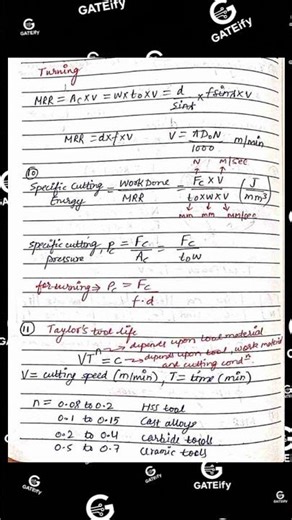 GATEify
GATEify
GATEify
Turning
MRR = Ac × V = w × t₀ × V = d/sinλ × f sinλ × V
MRR = d × f × V    V = πD₀N/1000 m/min
N    M/SEC
(10)
Specific Cutting Energy = Work Done/MRR = Fc × V/t₀ × w × V (J/mm³)
mm mm mm/sec
specific cutting pressure, Pc = Fc/Ac = Fc/t₀w
for turning ⇒ Pc = Fc/f·d
(11) Taylor's tool life
→ depends upon tool material
VTⁿ = C → depends upon tool, work material and cutting condⁿ
V = cutting speed (m/min), T = time (min)
n = 0.08 to 0.2    HSS tool
0.1 to 0.15    Cast alloys
0.2 to 0.4    Carbide tools
0.5 to 0.7    Ceramic tools
GATEify
GATEify
GATEify